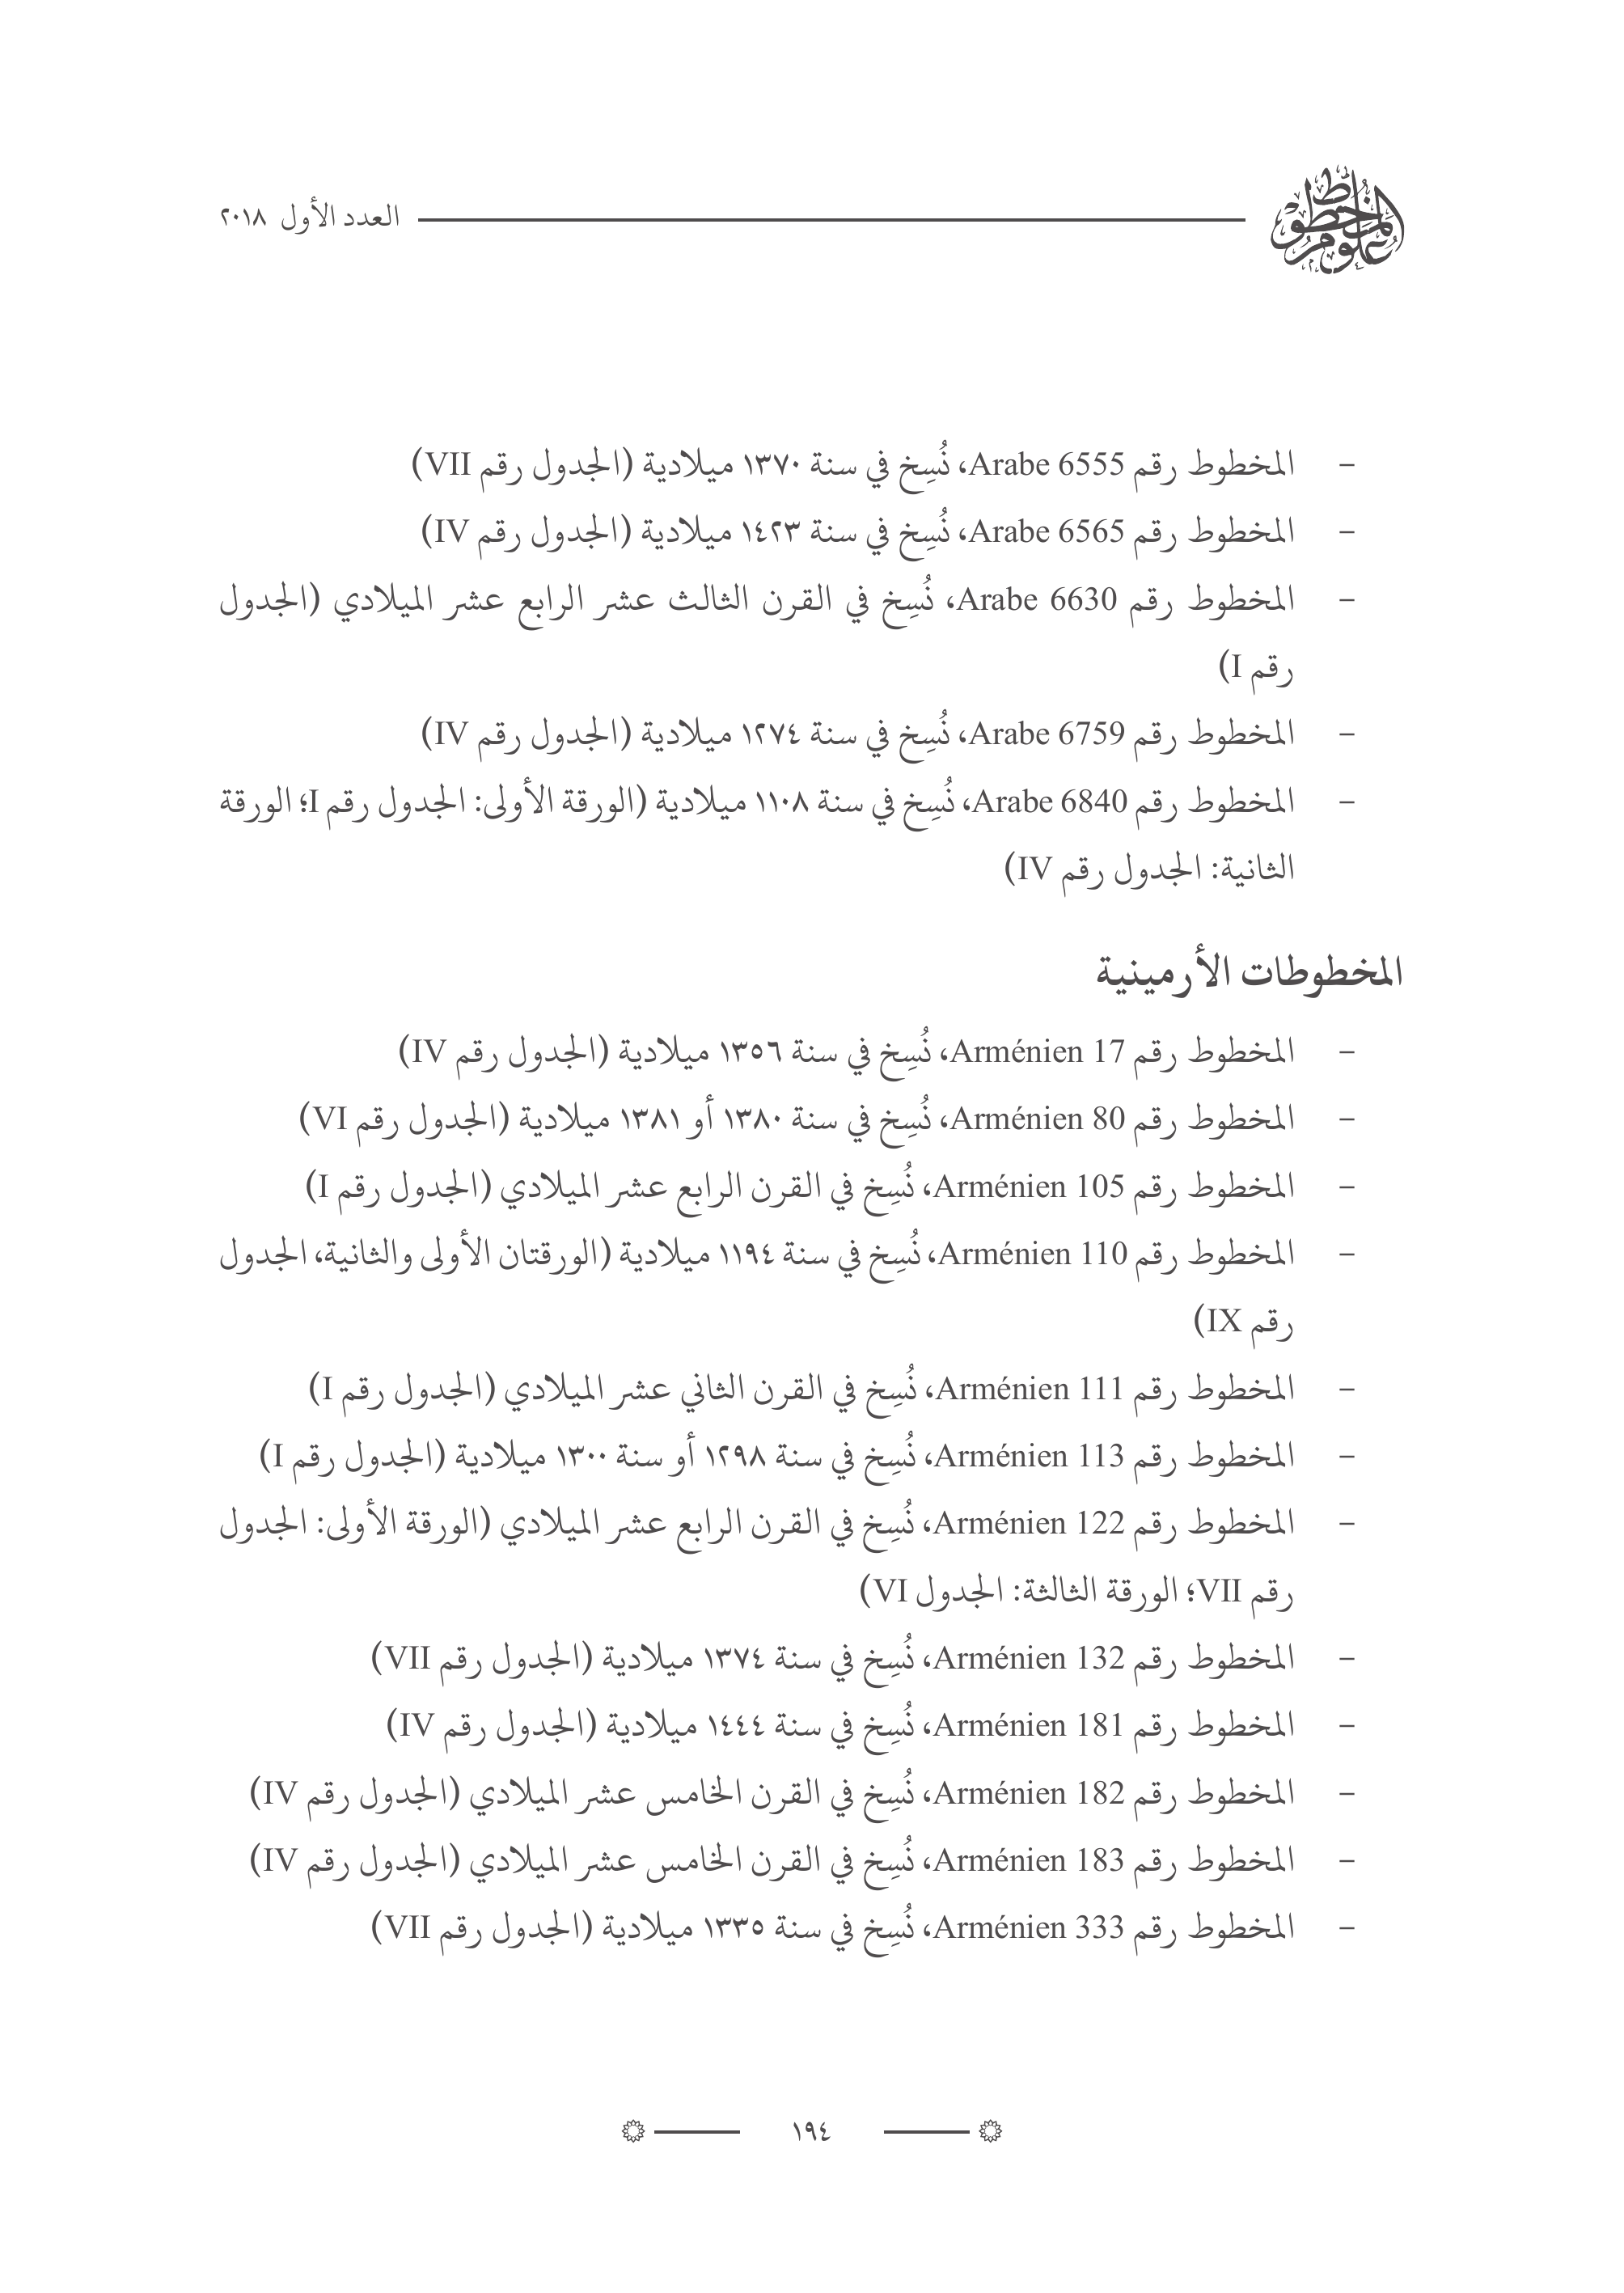 علوم المخطوط
العدد الأول ٢٠١٨
- المخطوط رقم Arabe 6555، نُسِخ في سنة ١٣٧٠ ميلادية (الجدول رقم VII)
- المخطوط رقم Arabe 6565، نُسِخ في سنة ١٤٢٣ ميلادية (الجدول رقم IV)
- المخطوط رقم Arabe 6630، نُسِخ في القرن الثالث عشر الرابع عشر الميلادي (الجدول
رقم I)
- المخطوط رقم Arabe 6759، نُسِخ في سنة ١٢٧٤ ميلادية (الجدول رقم IV)
- المخطوط رقم Arabe 6840، نُسِخ في سنة ١١٠٨ ميلادية (الورقة الأولى: الجدول رقم I؛ الورقة
الثانية: الجدول رقم IV)
المخطوطات الأرمينية
- المخطوط رقم Arménien 17، نُسِخ في سنة ١٣٥٦ ميلادية (الجدول رقم IV)
- المخطوط رقم Arménien 80، نُسِخ في سنة ١٣٨٠ أو ١٣٨١ ميلادية (الجدول رقم VI)
- المخطوط رقم Arménien 105، نُسِخ في القرن الرابع عشر الميلادي (الجدول رقم I)
- المخطوط رقم Arménien 110، نُسِخ في سنة ١١٩٤ ميلادية (الورقتان الأولى والثانية، الجدول
رقم IX)
- المخطوط رقم Arménien 111، نُسِخ في القرن الثاني عشر الميلادي (الجدول رقم I)
- المخطوط رقم Arménien 113، نُسِخ في سنة ١٢٩٨ أو سنة ١٣٠٠ ميلادية (الجدول رقم I)
- المخطوط رقم Arménien 122، نُسِخ في القرن الرابع عشر الميلادي (الورقة الأولى: الجدول
رقم VII؛ الورقة الثالثة: الجدول VI)
- المخطوط رقم Arménien 132، نُسِخ في سنة ١٣٧٤ ميلادية (الجدول رقم VII)
- المخطوط رقم Arménien 181، نُسِخ في سنة ١٤٤٤ ميلادية (الجدول رقم IV)
- المخطوط رقم Arménien 182، نُسِخ في القرن الخامس عشر الميلادي (الجدول رقم IV)
- المخطوط رقم Arménien 183، نُسِخ في القرن الخامس عشر الميلادي (الجدول رقم IV)
- المخطوط رقم Arménien 333، نُسِخ في سنة ١٣٣٥ ميلادية (الجدول رقم VII)
١٩٤